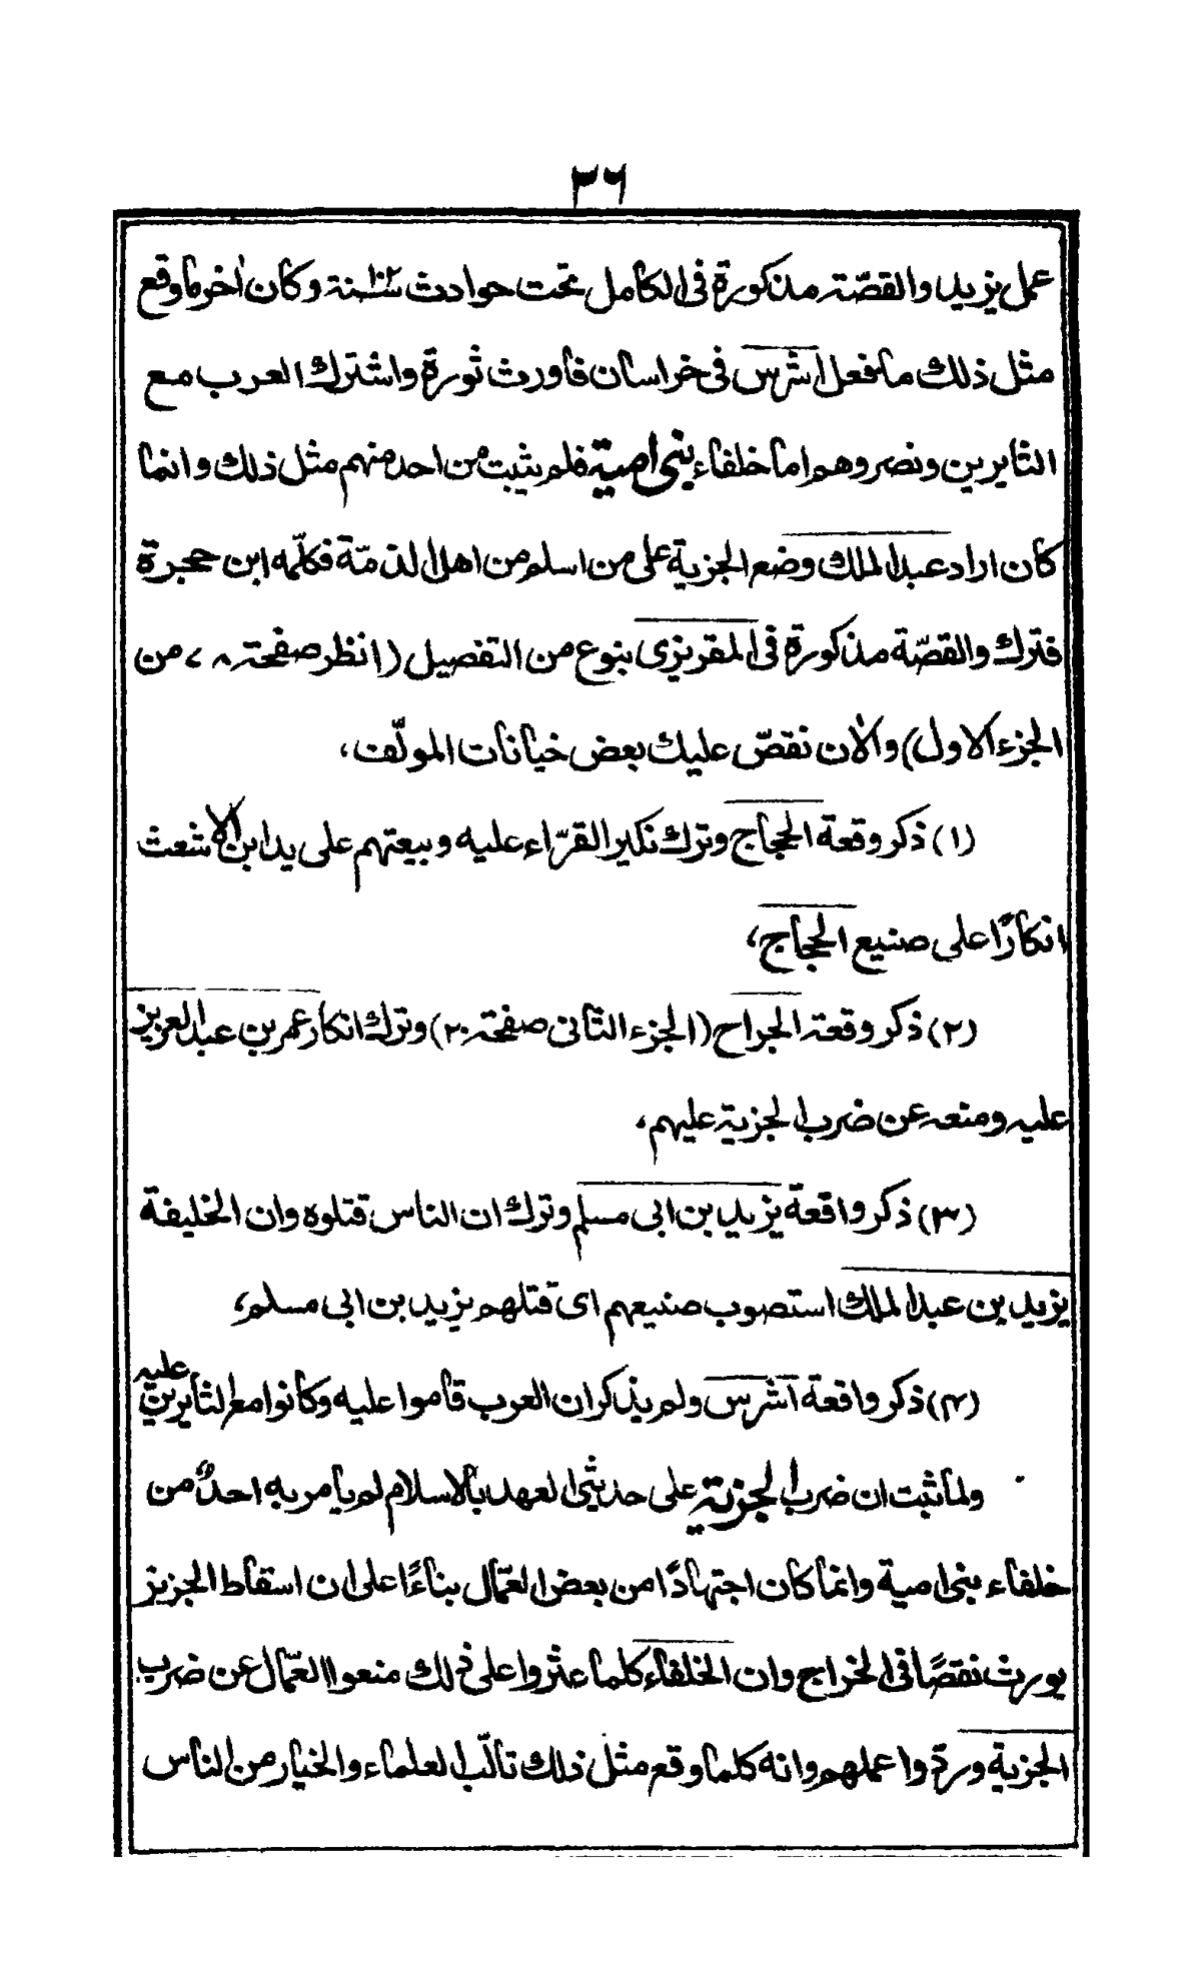 ٣٦
عمل يزيد، والقصّة مذكورة فى الكامل تحت حوادث سنة ١٠٢ وكان اٰخر ما وقع
مثل ذلك ما فعل اشرس فى خراسان فأورث ثورة واشترك العرب مع
الثايرين ونصروهم اما خلفاء بنى امية فلم يثبت من احد منهم مثل ذلك وانما
كان اراد عبد الملك وضع الجزية على من اسلم من اهل الذمّة فكلّمه ابن حجيرة
فترك والقصّة مذكورة فى المقريزى بنوع من التفصيل (انظر صفحة ٧٨ من
الجزء الاول) والاٰن نقصّ عليك بعض خيانات المولّف،
(١) ذكر وقعة الحجاج وترك نكير القرّاء عليه وبيعتهم على يد ابن الاشعث
انكارًا على صنيع الحجاج،
(٢) ذكر وقعة الجراح (الجزء الثانى صفحة ٢٠) وترك انكار عمر بن عبد العزيز
عليه ومنعه عن ضرب الجزية عليهم،
(٣) ذكر واقعة يزيد بن ابى مسلم وترك ان الناس قتلوه وان الخليفة
يزيد بن عبد الملك استصوب صنيعهم اى قتلهم يزيد بن ابى مسلم،
(٤) ذكر واقعة اشرس ولم يذكر ان العرب قاموا عليه وكانوا مع الثايرين عليه
ولما ثبت ان ضرب الجزية على حديثى العهد بالاسلام لم يأمر به احدٌ من
خلفاء بنى امية وانما كان اجتهادًا من بعض العمّال بناءًا على ان اسقاط الجزيز
يورث نقصًا فى الخراج وان الخلفاء كلما عثروا على ذلك منعوا العمّال عن ضرب
الجزية وردّوا عملهم وانه كلما وقع مثل ذلك تالّب العلماء والخيار من الناس